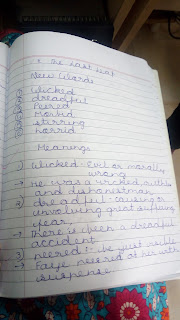 The last leaf
New Words
1) Wicked
2) dreadful
3) Peered
4) Morbid
5) stirring
6) horrid
Meanings
1) Wicked :- Evil or morally
wrong
→ He was a wicked,
and dishonest man
2) dreadful - causing or
involving great suffering
fear
→ There is been a dreadful
accident
3) peered :- be just visible
→ Faye peered at her with
suspense